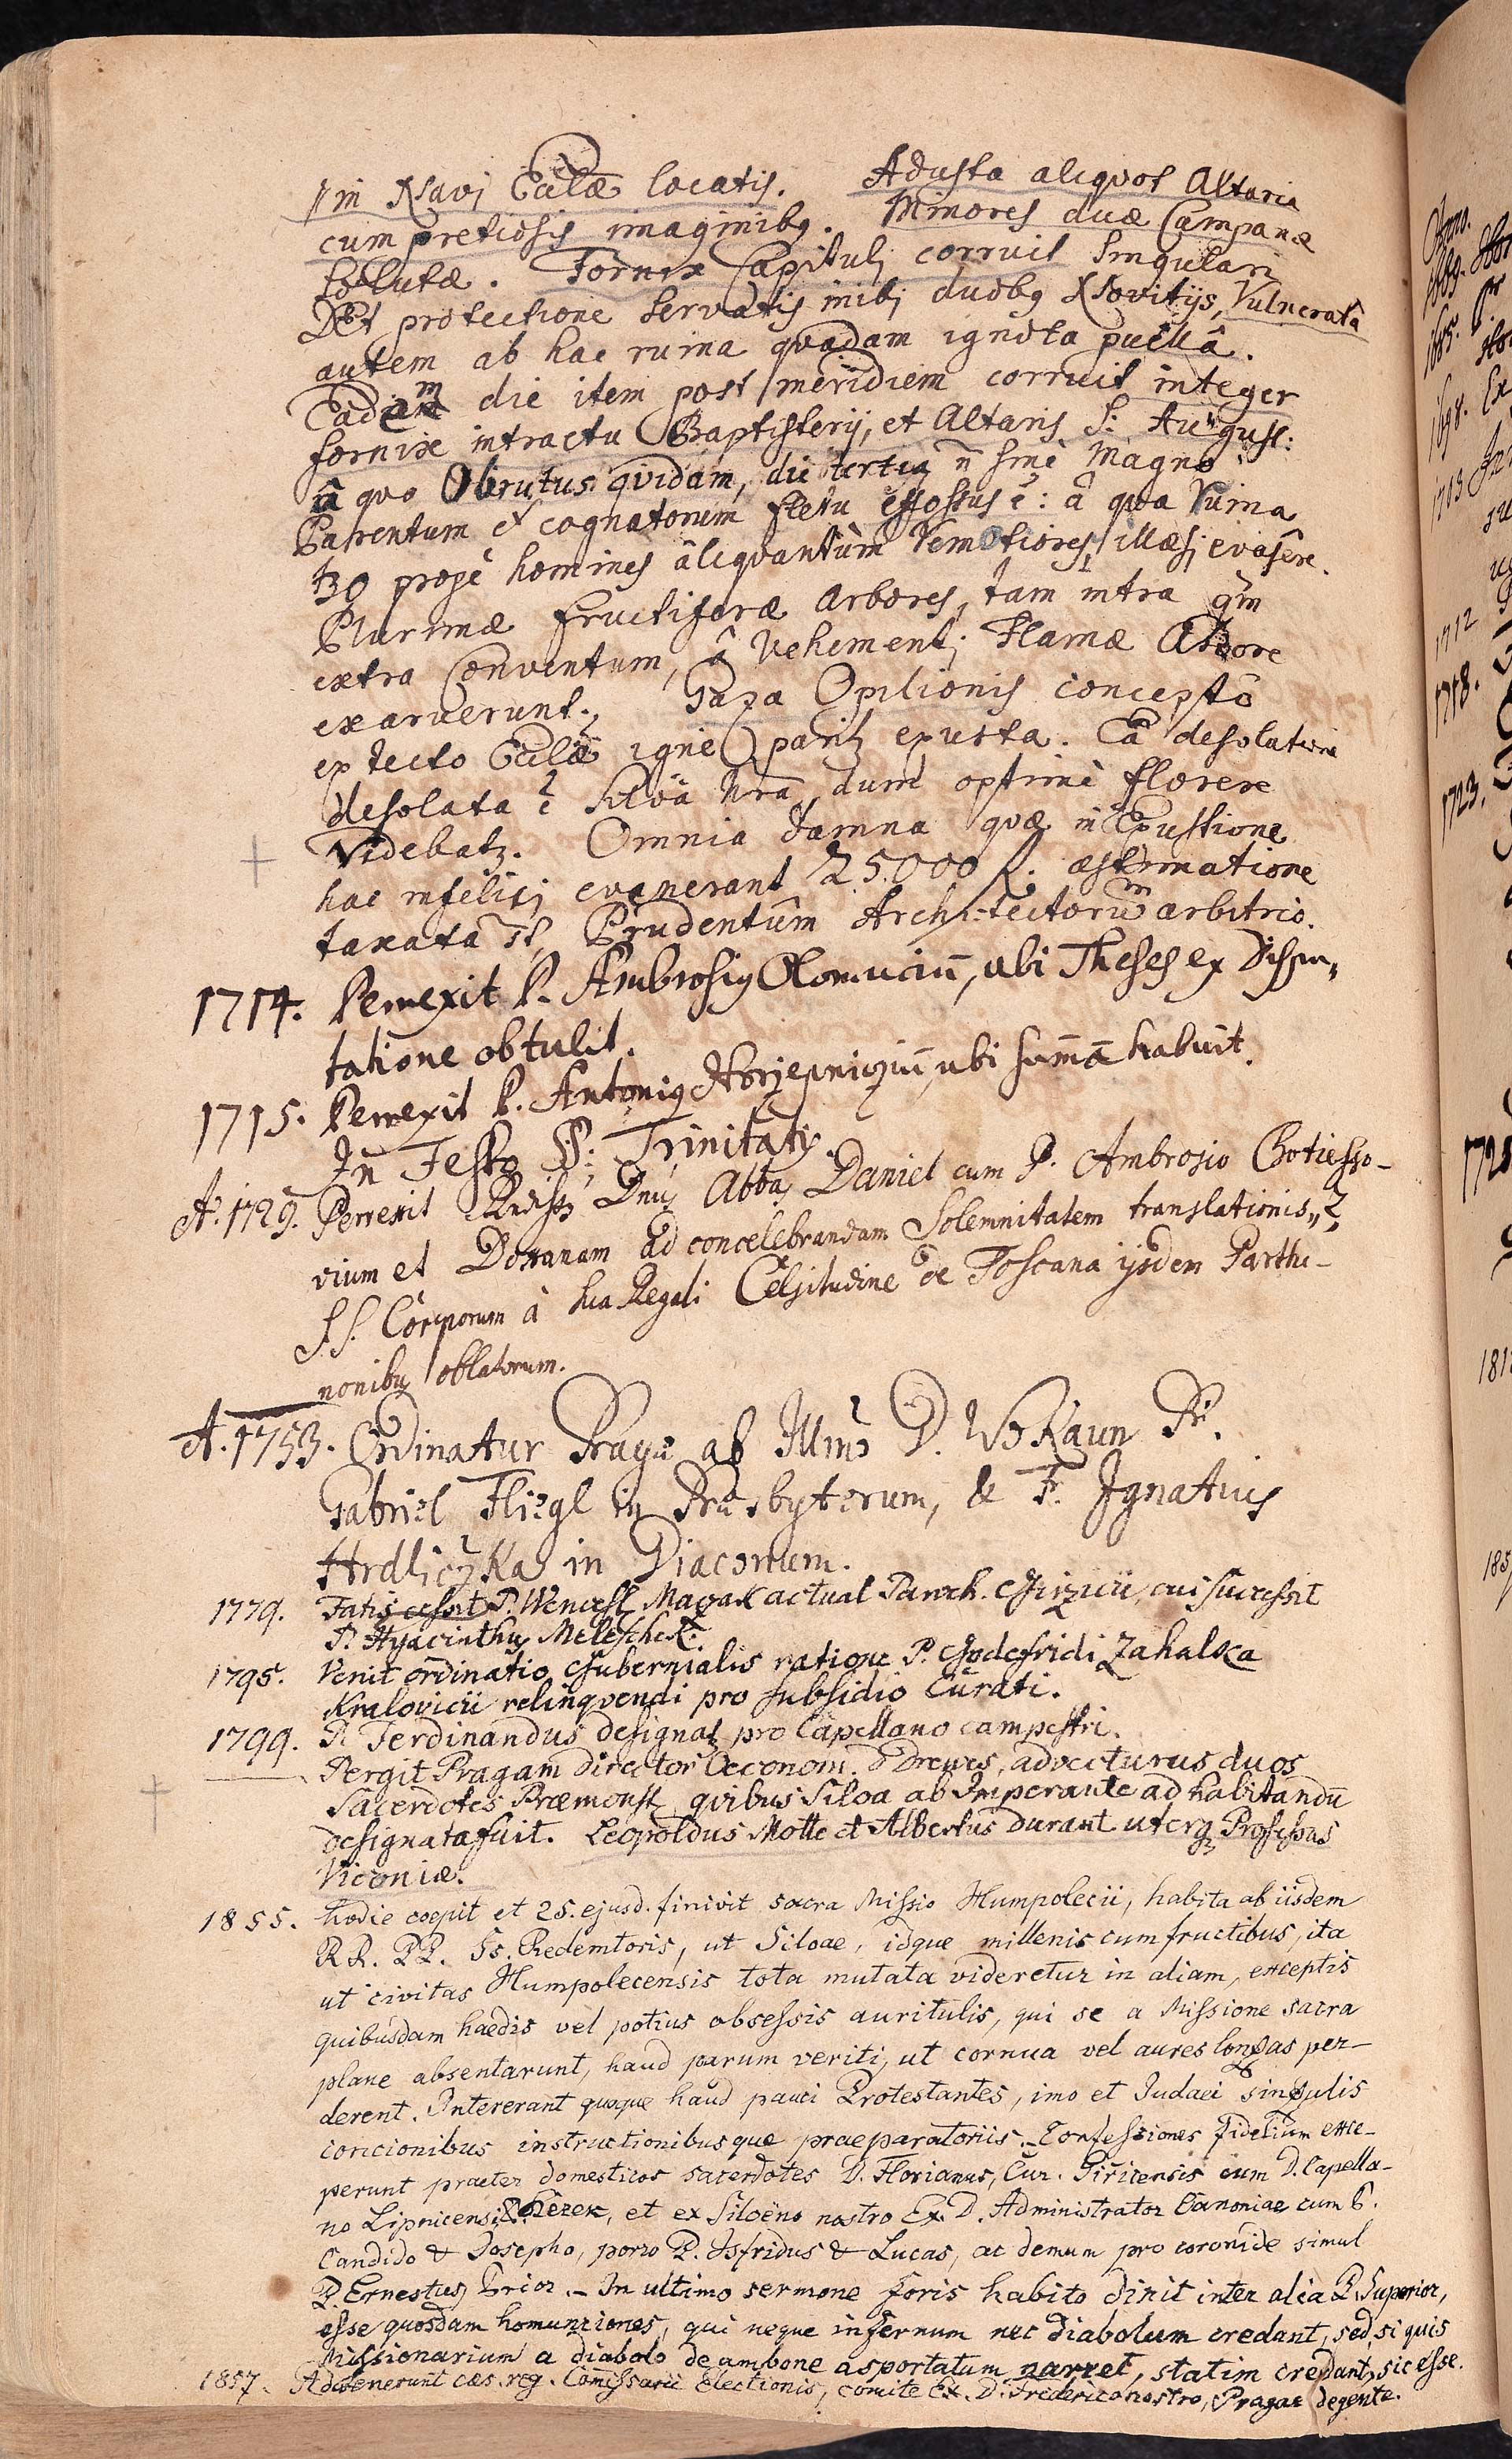 in Navi Eccl̄æ locatis. Adusta aliquot Altaria
cum pretiosis imaginibꝯ. Minores duæ Campanæ
solutæ. Fornix Capituli corruit singulari
Dei protectione servatis inibi duobꝯ Novitijs, Vulneratâ
autem ab hac ruina quadam ignota puellâ.
Eadem die item post meridiem corruit integer
fornix intractu Baptisterij, et Altaris S: August:
â quo Obrutus quidam, die tertia n̄ sine magno
Parentum et cognatorum fletu effossus ē: â qua ruina
30 propè homines âliquantùm remotiores, illæsi evasêre.
Plurimæ fructiferæ Arbores, tam intra qm̄
extra Conventum, â Vehementi Flamæ Ardore
exaruerunt. Gaza Opilionis concepto
ex tecto Eccl̄æ igne parit̃ exusta. Eâ desolatione
desolata ē Silöa nr̄a, dum optimè florere
Videbatꝛ. Omnia damna quæ in Exustione
hac infelici evenerant 25000 fl. æstimatione
taxata sт̃, Prudentûm Architectorū arbitrio.
1714. Perrexit P. Ambrosiꝯ Olomuciū, ubi Theses ex Dispu„
tatione obtulit.
1715. Perrexit P. Antoniꝯ Horzepniciū, ubi sum̄ā habuit.
In Festo SS: Trinitatis
A. 1729. Perrexit Rdiss Dnꝯ Abbas Daniel cum P. Ambrosio Chotiesso-
vium et Doxanam ad concelebrandam Solemnitatem translationis„
S.S. Corporum â sua Regali Celsitudine de Toscana ijsdem Parthe-
nonibꝯ oblatorum.
A. 1753. Ordinatur Pragæ ab Illmo D. Wokaun Fr.
Gabriel Fliegl in Presbyterum, & Fr. Ignatius
Hrdliczka in Diaconum.
1779. Fatis cessit P. Wencesl. Mayak actual Paroch. Girzicii, cui successit
P. Hyacinthꝯ Meleschek.
1795. Venit ordinatio Gubernialis ratione P. Godefridi Zahalka
Kralovicii relinquendi pro subsidio Curati.
1799. P. Ferdinandus designat̃ pro Capellano campestri.
Pergit Pragam Director Oeconom. D Drewes, advecturus duos
Sacerdotes Præmonst. quibus Siloa ab Imperante ad habitandū
designata fuit. Leopoldus Motte et Albertus Durant uterqꝫ Professus
Viconiæ.
1855. Hodie coepit et 25. ejusd. finivit sacra Missio Humpolecii, habita ab iisdem
R.R. P.P. Ss. Redemtoris, ut Siloae, idque millenis cum fructibus, ita
ut civitas Humpolecensis tota mutata videretur in aliam, exceptis
quibusdam haedis vel potius obsessis auritulis, qui se a Missione sacra
plane absentarunt, haud parum veriti, ut cornua vel aures longas per-
derent. Intererant quoque haud pauci Protestantes, imo et Judaei singulis
concionibus instructionibusque praeparatoriis. - Confessiones fidelium exce-
perunt praeter domesticos sacerdotes D. Florianus, Cur. Giricensis cum D. Capella-
no Lipnicensi Rezek, et ex Siloëno nostro Ex. D. Administrator Canoniae cum P.
Candido & Josepho, porro P. Isfridus & Lucas, ac demum pro coronide simul
P. Ernestus, Prior. - In ultimo sermone foris habito dixit inter alia P. Superior,
esse quosdam homunciones, qui neque infernum nec diabolum credant, sed, si quis
Missionarium a diabolo de ambone asportatum narret, statim credant, sic esse.
1857. Advenerunt cæs. reg. Com̄issarii Electionis, comite Ex. D. Frederico nostro, Pragae degente.
Anno.
1669.
1685.
1698. Ex
1703.
1712
1718.
1723.
1728
181
185